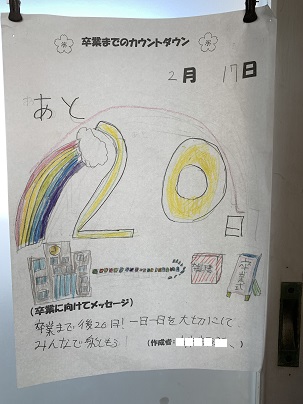 卒業までのカウントダウン
2月 17日
あと
20
日
卒業式
(卒業に向けてメッセージ)
卒業まで後20日!一日一日を大切にして
みんなで楽しもう!
(作成者: